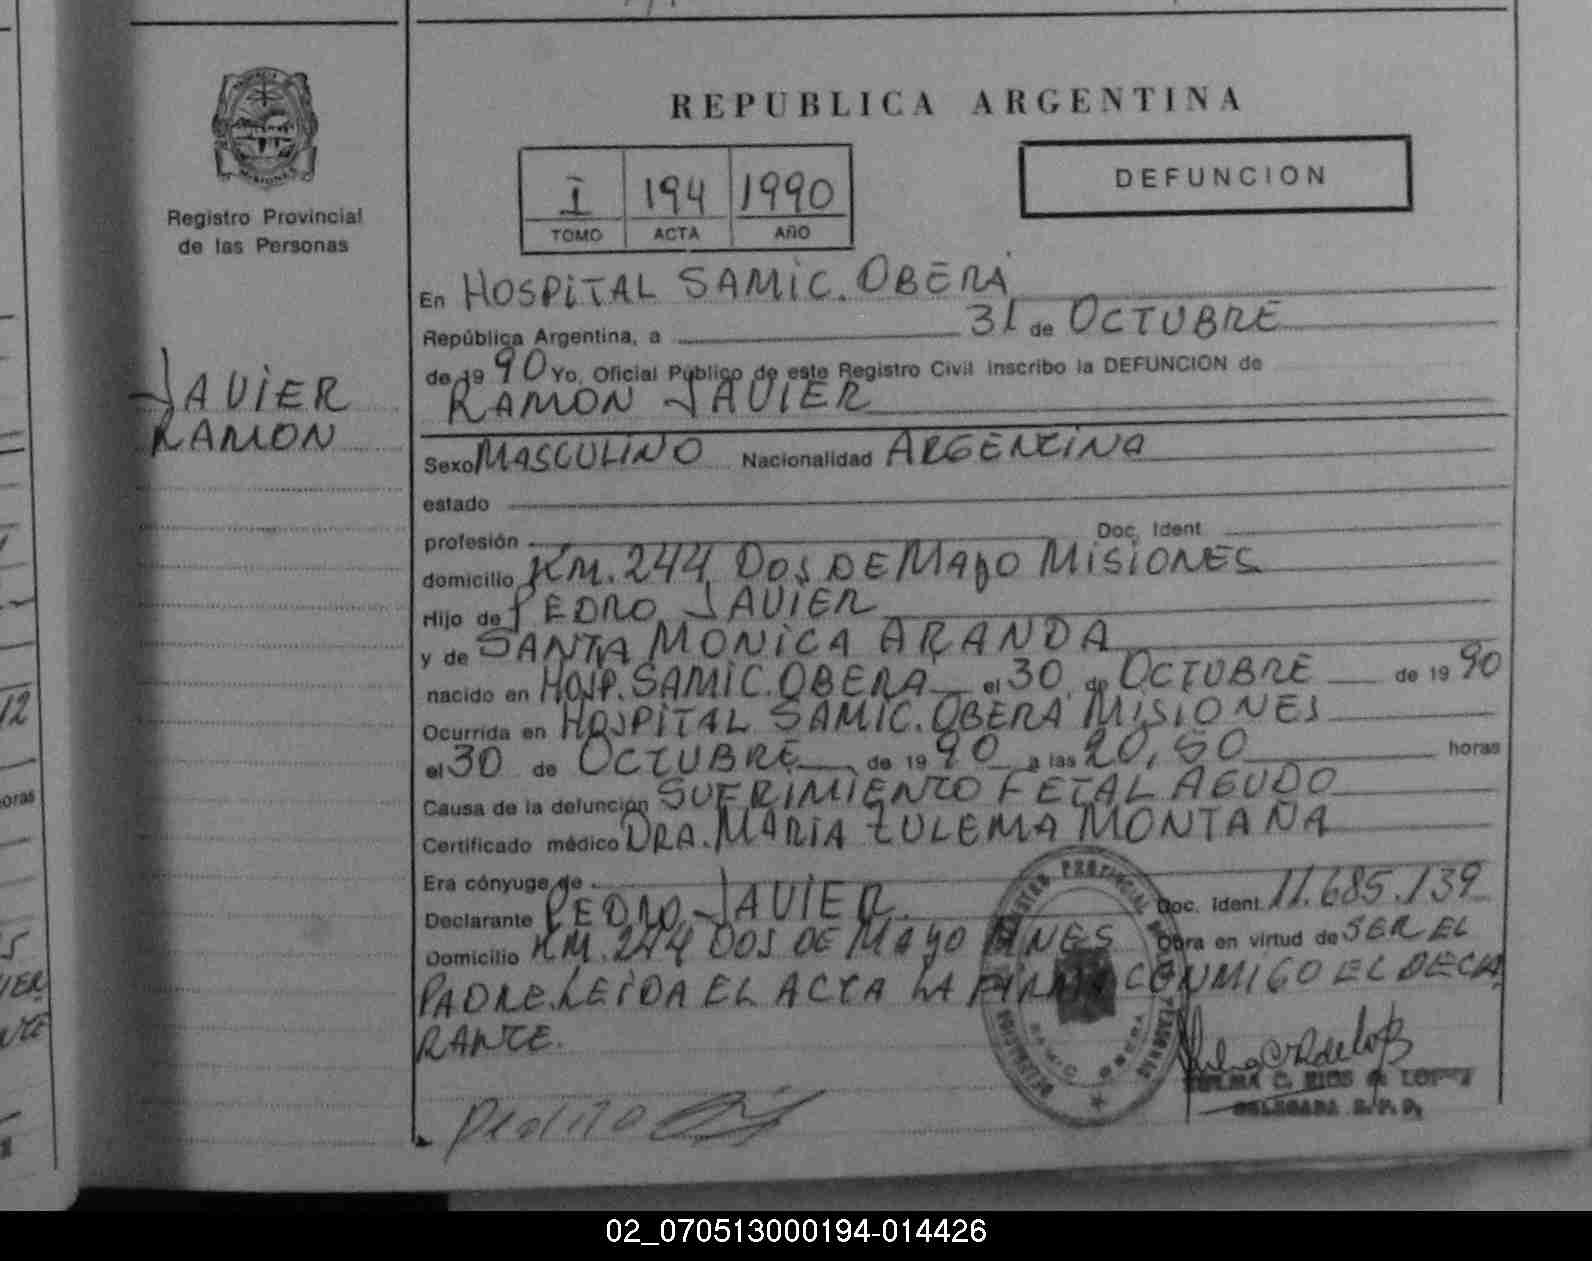 REPUBLICA ARGENTINA
Registro Provincial
de las Personas
JAVIER
RAMON
I 194 1990
TOMO ACTA AÑO
DEFUNCION
En HOSPITAL SAMIC. OBERA
República Argentina, a 31 de OCTUBRE
de 1990 Yo, Oficial Público de este Registro Civil inscribo la DEFUNCION de
RAMON JAVIER
Sexo MASCULINO Nacionalidad ARGENTINA
estado
profesión Doc. Ident
domicilio KM. 244 DOS DE MAYO MISIONES
Hijo de PEDRO JAVIER
y de SANTA MONICA ARANDA
nacido en HOSP. SAMIC. OBERA el 30 de OCTUBRE de 1990
Ocurrida en HOSPITAL SAMIC. OBERA MISIONES
el 30 de OCTUBRE de 1990 a las 20,50 horas
Causa de la defunción SUFRIMIENTO FETAL AGUDO
Certificado médico DRA. MARIA ZULEMA MONTAÑA
Era cónyuge de
Declarante PEDRO JAVIER. Doc. Ident. 11.685.139
Domicilio KM. 244 DOS DE MAYO MNES Obra en virtud de SER EL
PADRE. LEIDA EL ACTA LA FIRMA CONMIGO EL DECLA
RANTE.
C. RIOS LOPEZ
DELEGADA R.P.P.
02_070513000194-014426